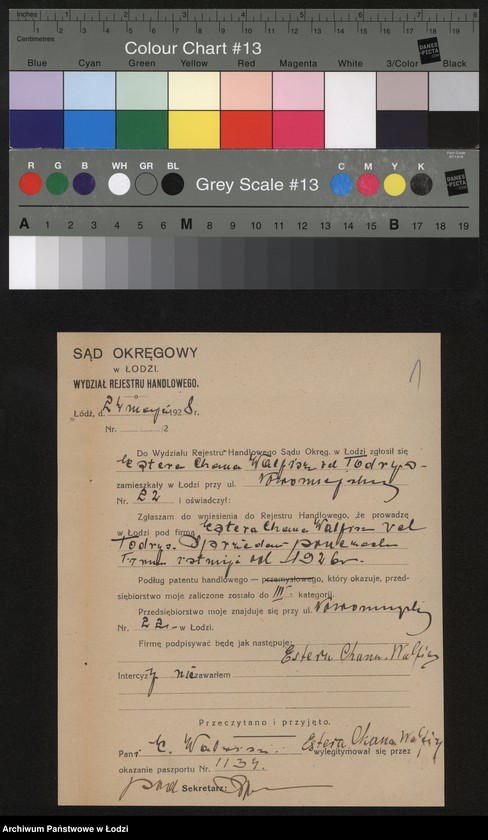 Inches 1 2 3 4 5 6 7 8
Centimetres 1 2 3 4 5 6 7 8 9 10 11 12 13 14 15 16 17 18 19
Colour Chart #13
DANES-PICTA
Blue Cyan Green Yellow Red Magenta White 3/Color Black
R G B WH GR BL Grey Scale #13 C M Y K
DANES-PICTA
A 1 2 3 4 5 6 M 8 9 10 11 12 13 14 15 B 17 18 19
SĄD OKRĘGOWY
w ŁODZI.
WYDZIAŁ REJESTRU HANDLOWEGO.
1
Łódź, d. 24 maja 1928 r.
Nr. /2
Do Wydziału Rejestru Handlowego Sądu Okręg. w Łodzi zgłosił się
Estera Chana Walfisz vel Todrys
zamieszkały w Łodzi przy ul. Nowomiejskiej
Nr. 22 i oświadczył:
Zgłaszam do wniesienia do Rejestru Handlowego, że prowadzę
w Łodzi pod firmą Estera Chana Walfisz vel
Todrys. Sprzedaż
istnieje od 1926 r.
Podług patentu handlowego — przemysłowego, który okazuje, przed-
siębiorstwo moje zaliczone zostało do III kategorji.
Przedsiębiorstwo moje znajduje się przy ul. Nowomiejskiej
Nr. 22 w Łodzi.
Firmę podpisywać będę jak następuje:
Estera Chana Walfisz
Intercyzy nie zawarłem
Przeczytano i przyjęto.
Estera Chana Walfisz
Pan wylegitymował się przez
okazanie paszportu Nr. 1134.
Sekretarz:
Archiwum Państwowe w Łodzi